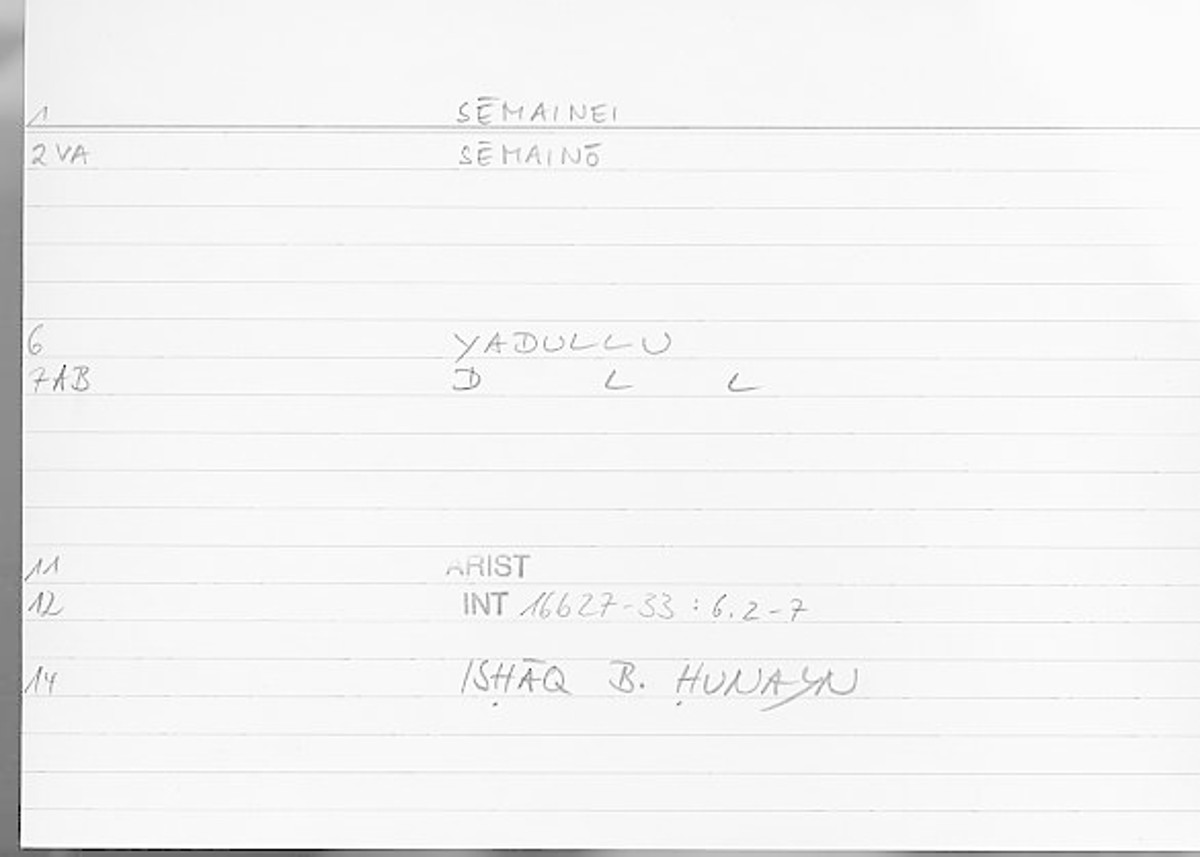 1 SĒMAINEI
2 VA SĒMAINŌ
6 YADULLU
7 AB D L L
11 ARIST
12 INT 16627-33 : 6.2-7
14 ISḤĀQ B. ḤUNAYN